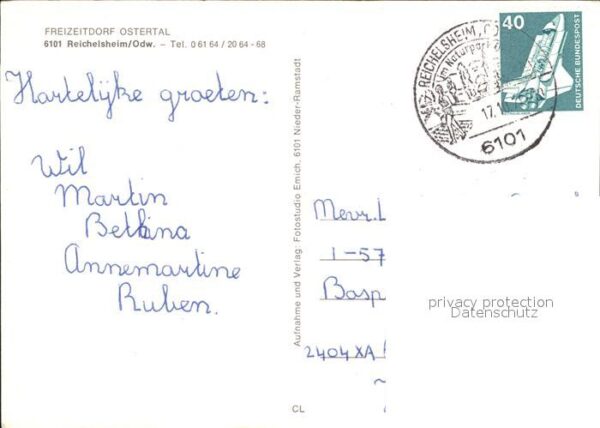 FREIZEITDORF OSTERTAL
6101 Reichelsheim/Odw. – Tel. 0 61 64 / 20 64 - 68
Hartelijke groeten:
Wil
Martin
Bettina
Annemartine
Ruben.
Aufnahme und Verlag: Fotostudio Emich, 6101 Nieder-Ramstadt
CL
REICHELSHEIM
Im Naturpark
17.1
6101
40
DEUTSCHE BUNDESPOST
Mevr.
1-57
Bosp
2404XA
privacy protection
Datenschutz